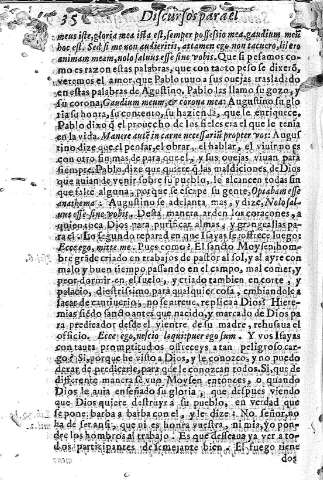 35 Discursos para el
meus iste, gloria mea ista est, semper possessio mea, gaudium meũ
hoc est. Sed si me non audieritis, attamen ego non tacuero, libero
animam meam, nolo saluus esse sine vobis. Que si pesamos co-
mo es razon estas palabras, que con tanto peso se dixerõ,
veremos el amor, que Pablo tuuo a sus ouejas trasladado
en estas palabras de Agustino. Pablo las llamo su gozo, y
su corona, Gaudium meum, & corona mea: Augustino su glo
ria su honra, su contento, su hazienda, que le enriquece.
Pablo dixo q̃ el prouecho de los fieles era el que le tenia
en la vida. Manere autẽ in carne necessariũ propter vos: Augus
tino dize que el pensar, el obrar, el hablar, el viuir no es
con otro fin mas de para que el, y sus ouejas viuan para
siempre. Pablo dize que quiere q̃ las maldiciones de Dios
que auian de venir sobre su pueblo, le alcancen todas sin
que falte alguna, porque se escape su gente, Optabam esse
anathema: Augustino se adelanta mas, y dize, Nolo sal-
uus esse sine vobis. Desta manera arden los coraçones, a
quien toca Dios para purificar almas, y grangeallas pa-
ra el. Lo segundo reparad en que Isayas se ofrece luego:
Ecce ego, mitte me. Pues como? El sancto Moysen hom-
bre grãde criado en trabajos de pastor al sol, y al ayre con
malo y buen tiempo passando en el campo, mal comer, y
peor dormir en el suelo, y criado tambien en corte, y
palacio, diestrissimo para qualquier cosa, embiandole a
sacar de cautiuerio, no se atreue, replica a Dios? Hiere-
mias siẽdo sancto antes que nacido, y marcado de Dios pa
ra predicador desde el vientre de su madre, rehusaua el
officio. Ecce ego, nescio loqui puer ego sum. Y vos Isayas
con tanta promptitud os offreceys a tan peligroso car-
go? Si, porque he visto a Dios, y le conozco, y no puedo
dexar de predicarle, para que le conozcan todos. Si, que de
differente manera se vun Moysen entonces, o quando
Dios le auia enseñado su gloria, que despues viendo
que Dios quiere destruyr a su pueblo, en verdad que
se pone barba a barba con el, y le dize: No señor, no
ha de ser assi, que ni es honra vuestra, ni mia, yo pon-
dre los hombros al trabajo. Es que desseaua ya ver a to-
dos participantes de semejante bien. El fuego tiene
dos